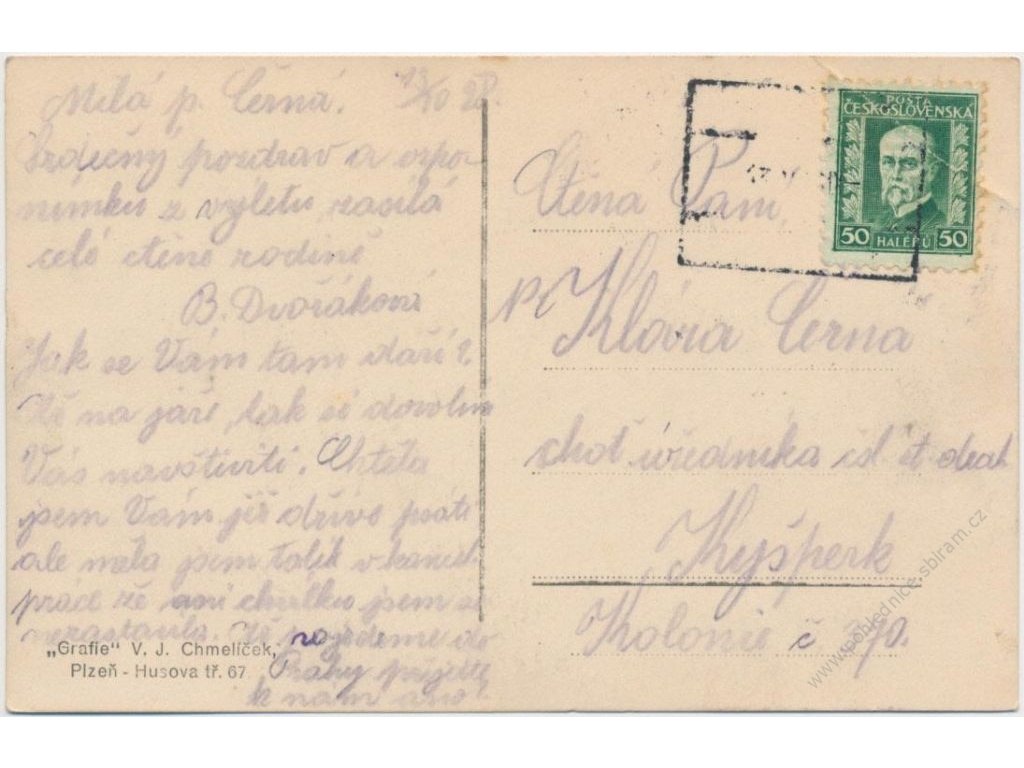 Milá p. Černá. 13/10 28.
Srdečný pozdrav a vzpo-
mínku z výletu, zasílá
celé ctěné rodině
B. Dvořáková
Jak se Vám tam daří?
Až na jaře, tak si dovolím
Vás navštíviti. Chtěla
jsem Vám již dříve psáti
ale měla jsem tolik v kancel.
práce že ani chvilku jsem se
nezastavila. Až pojedeme do
Prahy přijeďte
k nám ano?
„Grafie" V. J. Chmelíček,
Plzeň - Husova tř. 67
POŠTA
ČESKOSLOVENSKÁ
50 HALÉŘŮ 50
Ctěná Paní,
Klára Černa
choť úředníka čsl st drah
Kyšperk
Kolonie č
www.pohlednice-sbiram.cz